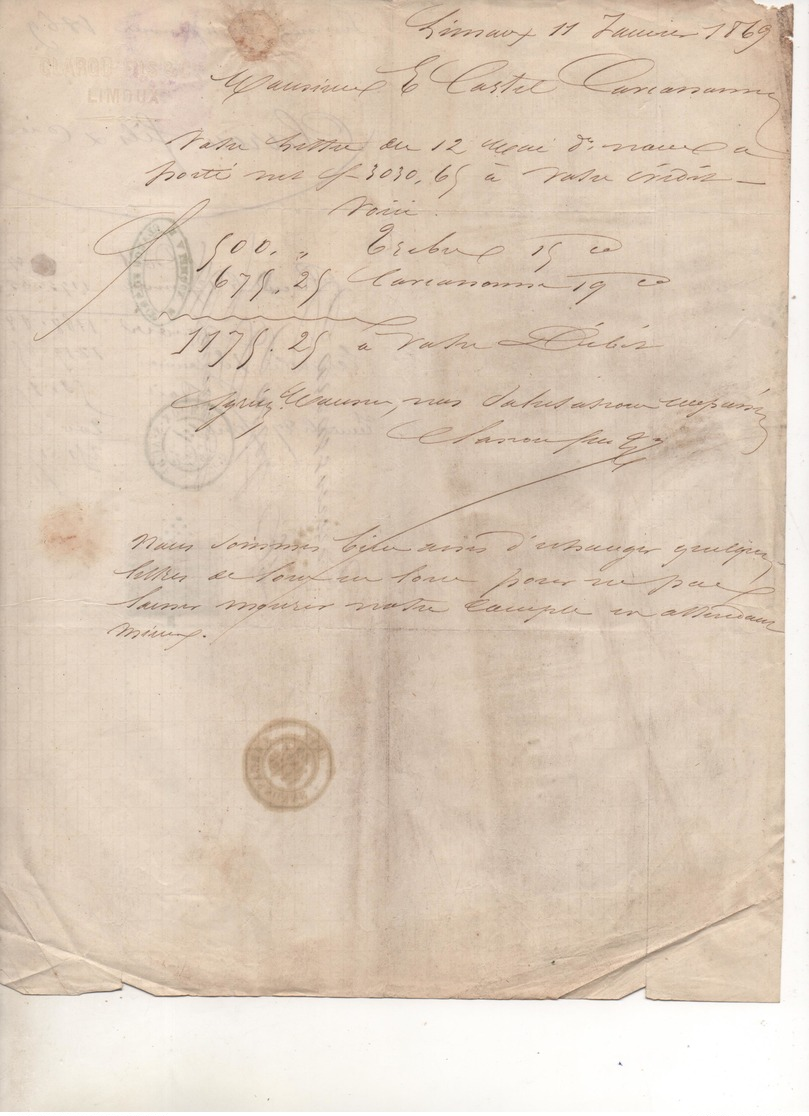 Limoux 11 Janvier 1869
Monsieur E Castel Carcassonne
Votre lettre du 12 Mai dr. nous a
porté net f 3030,65 à votre crédit –
Voici
500. „ Trèbes 15 co
675.25 Carcassonne 19 co
1175.25 à votre Débit
Agréez Monsieur, nos Salutations empressées
Nous sommes bien aises d'échanger quelques
lettres de loin en loin pour ne pas
laisser mourir notre Compte en attendant
mieux.
LIMOUX